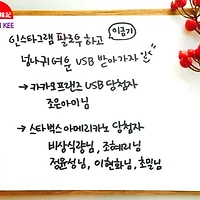 인스타그램 팔로우하고
이곰기
넘나귀여운 USB 받아가자
→ 카카오프랜즈 USB 당첨자
조은아님
→ 스타벅스아메리카노 당첨자
비상식량님, 조혜리님
정윤성님, 이현화님, 초밀님
KEE